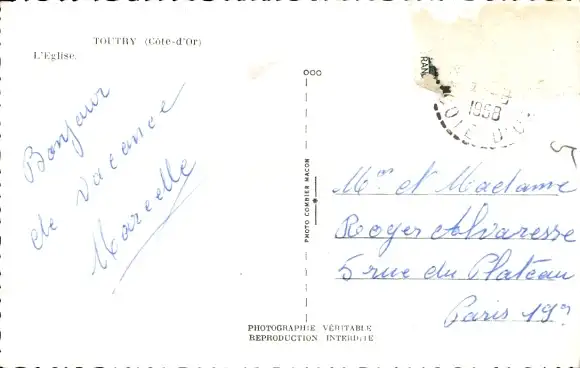 TOUTRY (Côte-d'Or)
L'Eglise.
Bonjour
de vacance
Marcelle
PHOTO COMBIER MACON
PHOTOGRAPHIE VÉRITABLE
REPRODUCTION INTERDITE
RAN
1958
COTE D'OR
Mr et Madame
Roger Alvaresse
5 rue du Plateau
Paris 19e